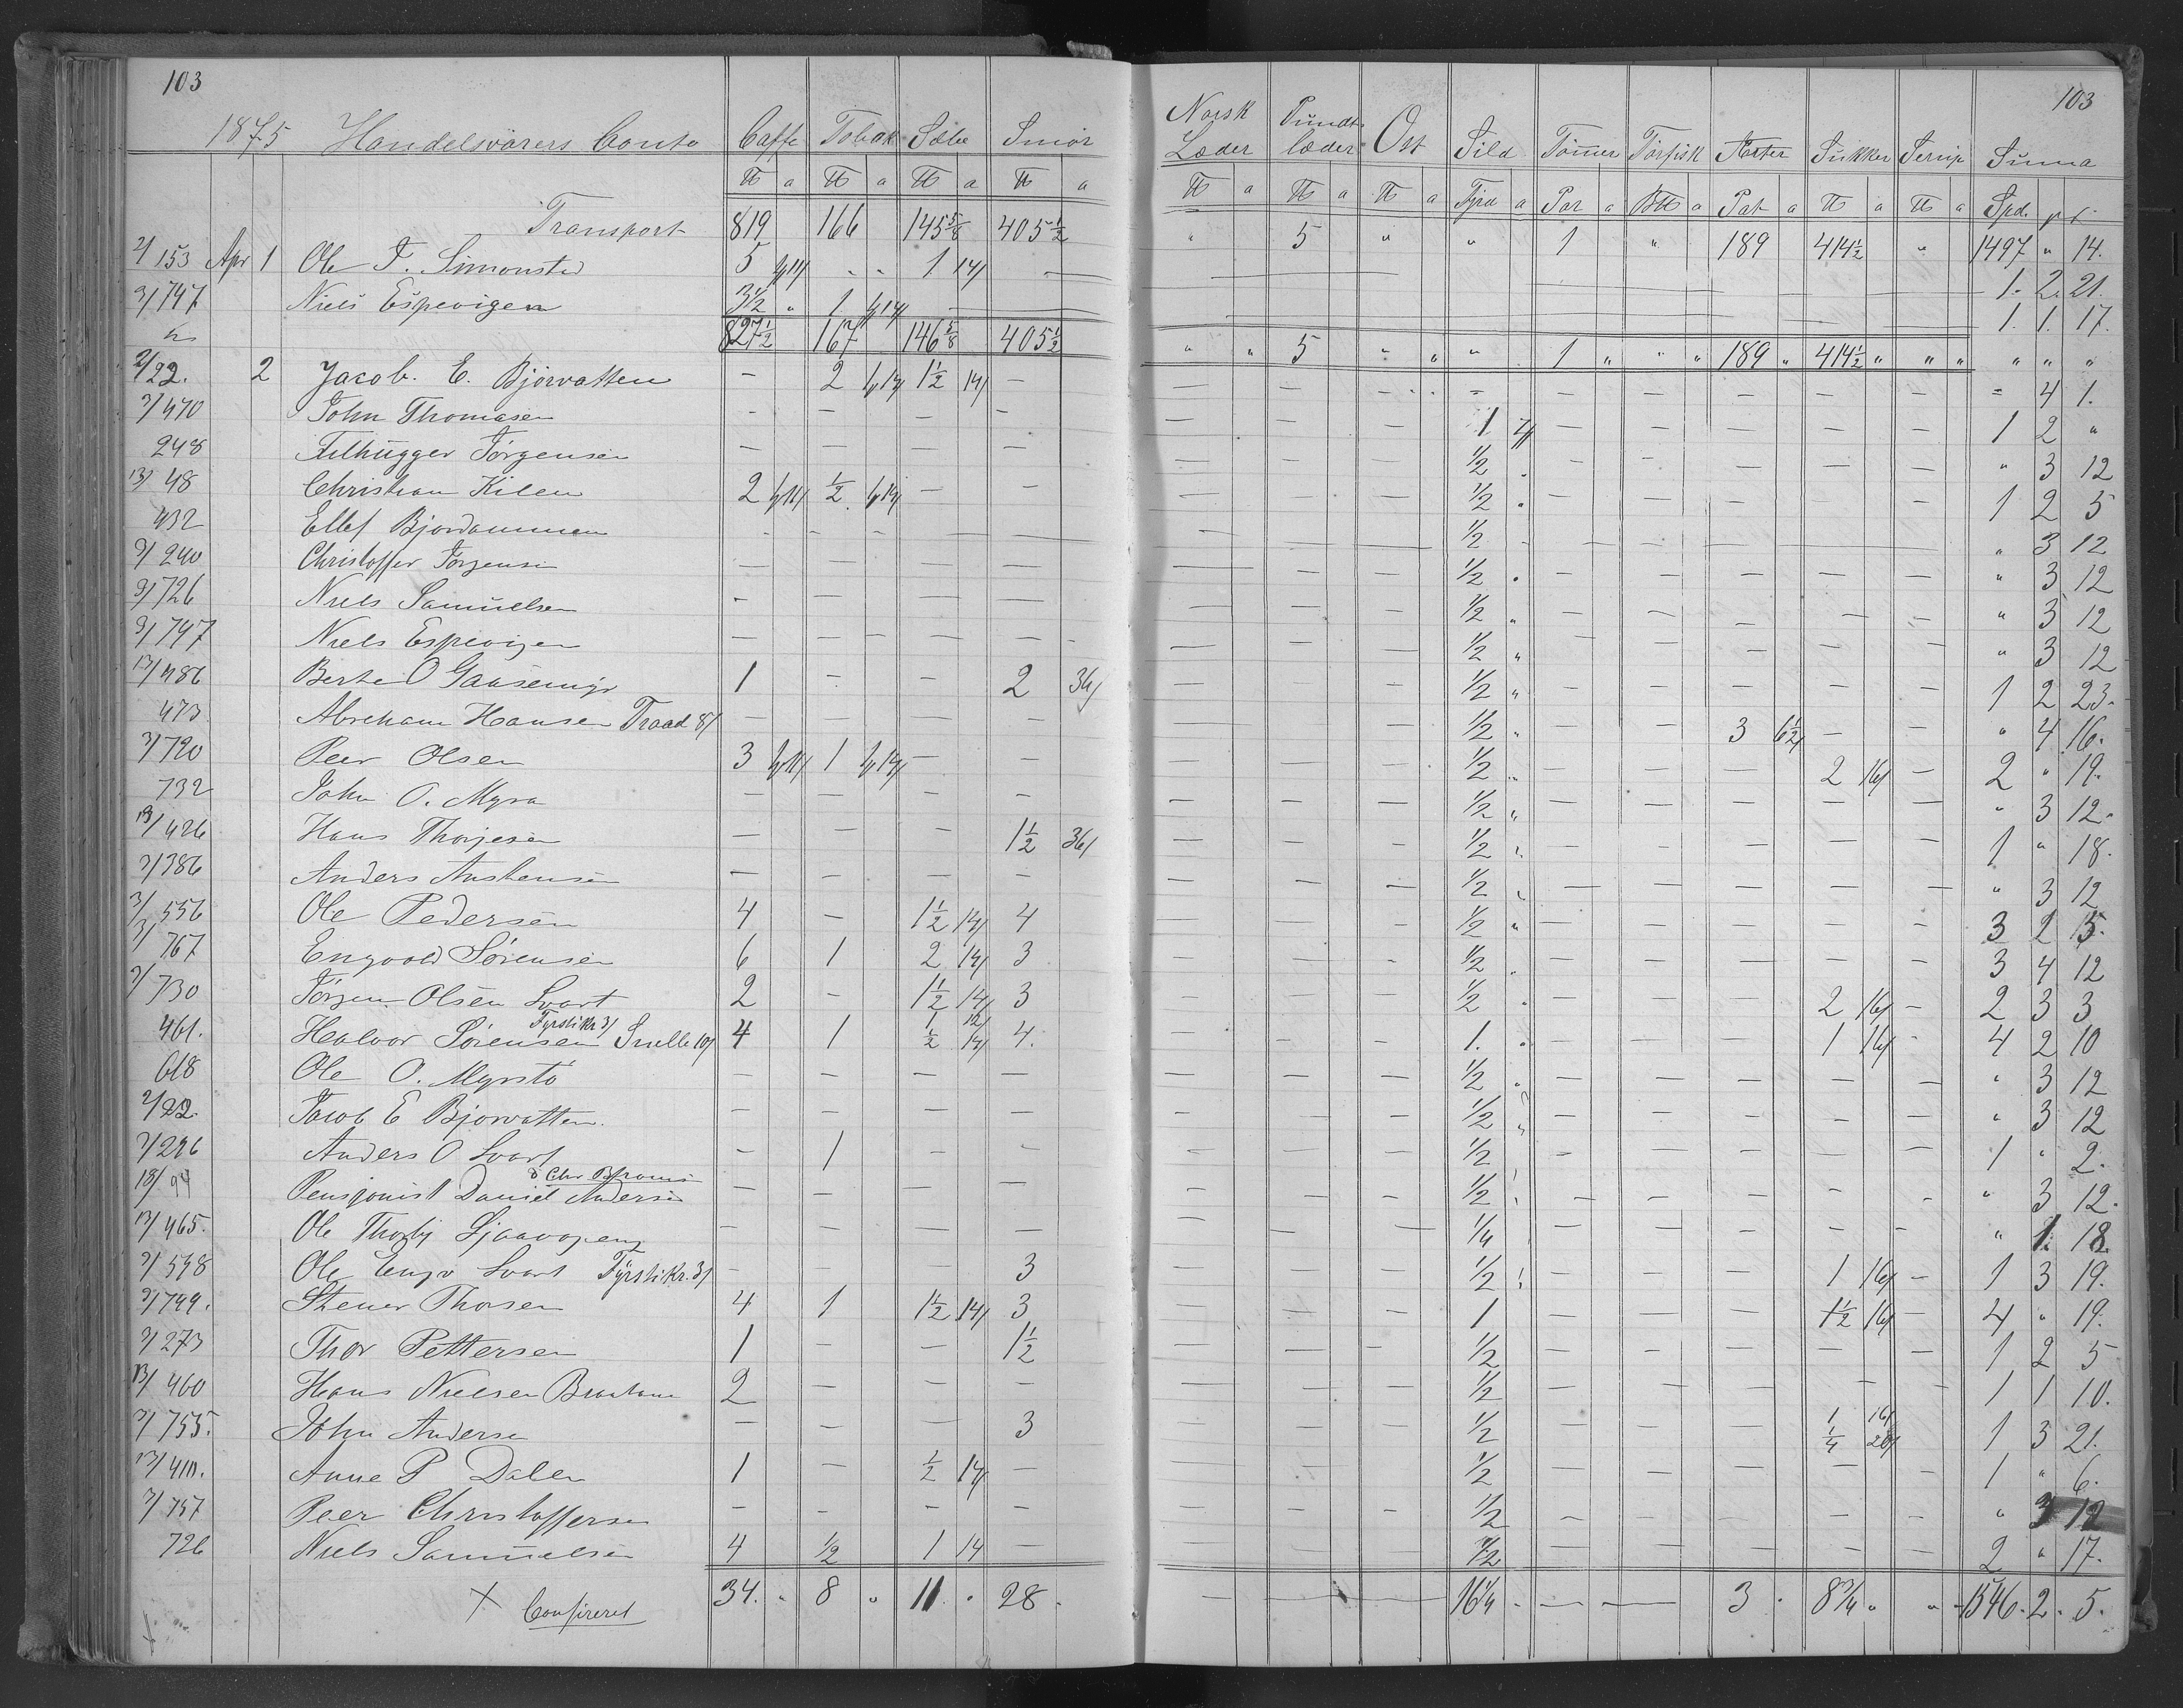 103 103
1875 Handelsvarers Conto Caffe Tobak Sæbe Smør Norsk Læder Pundtlæder Ost Sild Tømmer Tørfisk Ærter Sukker Sirup Summa
℔ a ℔ a ℔ a ℔ a ℔ a ℔ a ℔ a a Par a a Pat a ℔ a ℔ a Spd.
Transport 819 166 145 5/8 405 1/2 " 5 " " 1 " 189 414 1/2 " 1497 " 14.
2/ 153 Apr 1 Ole T. Simonsted 5 - - 1 14/ — 1. 2. 21.
3/ 747 Niels Espevigen 3 1/2 " 1 — — 1. 1. 17.
827 1/2 167 146 5/8 405 1/2 " " 5 " " " 1 " " " 189 " 414 1/2 " " " " " "
2/ 22. 2 Jacob. E. Bjorvatten — 2 1 1/2 14/ — — — — — — — — — — " 4 1.
3/ 470 John Thomasen — — — — — — — 1 — — — — — 1 2 "
248 Filhugger Jørgensen — — — — — — — 1/2 " — — — — — " 3 12
13/ 48 Christian Kilen 2 1/2 — — — — — 1/2 " — — — — — 1 2 5
432 Ellef Bjordammen — — — — — — — 1/2 — — — — — " 3 12
3/ 240 Christoffer Jørgensen — — — — — — — 1/2 " — — — — — " 3 12
3/ 726 Niels Samuelsen — — — — — — — 1/2 " — — — — — " 3 12
3/ 747 Niels Espevigen — — — — — — — 1/2 " — — — — — " 3 12
13/ 486 Berte O 1 — — 2 36/ — — — 1/2 " — — — — — 1 2 23.
473 Abraham Hansen Traad 8/ — — — — — — — 1/2 " — — 3 6 1/2 — — " 4 16.
3/ 720 Peer Olsen 3 1 — — — — — 1/2 " — — — 2 16/ — 2 " 19.
732 John O. Myra — — — — — — — 1/2 " — — — — — " 3 12.
13/ 426 Hans Thorjesen — — — 1 1/2 36/ — — — 1/2 " — — — — — 1 " 18.
3/ 386 Anders Anstensen — — — — — — — 1/2 " — — — — — " 3 12
3/ 556 Ole Pedersen 4 — 1 1/2 14/ 4 — — — 1/2 " — — — — — 3 2 15.
3/ 767 Engvold Sørensen 6 1 2 14/ 3 — — — 1/2 " — — — — — 3 4 12
3/ 730 Jørgen Olsen Svart 2 — 1 1/2 14/ 3 — — — 1/2 " — — — 2 16/ — 2 3 3
461. Halvor Sørensen Fyrstikr 3/ Snelle 10/ 4 1 1 12/ 1/2 14/ 4. — — — 1. " — — — 1 16/ — 4 2 10
618 Ole O. Myrstø — — — — — — — 1/2 " — — — — — " 3 12
2/ 22. Jacob E Bjorvatten. — — — — — — — 1/2 " — — — — — " 3 12
3/ 296 Anders O Svart — 1 — — — — — 1/2 — — — — — 1 " 2.
18/ 94 Pensjonist Daniel Andersen — — — — — — — 1/2 — — — — — " 3 12.
13/ 465. Ole — — — — — — — 1/4 — — — — — " 1. 18.
3/ 548 Ole Engv Svart Fyrstikr. 3/ — — — 3 — — — 1/2 — — — 1 16/ — 1 3 19.
3/ 799. Stener Thorsen 4 1 1 1/2 14/ 3 — — — 1 — — — 1 1/2 16/ — 4 " 19.
3/ 273 Thor Pettersen 1 — — 1 1/2 — — — 1/2 — — — — — 1 2 5
13/ 460 Hans Nielsen 2 — — — — — — 1/2 — — — — — 1 1 10.
3/ 755. John Andersen — — — 3 — — — 1/2 — — — 1 16/ 1/4 20/ — 1 3 21.
13/ 410. Anne P Dalen 1 — 1/2 14/ — — — — 1/2 — — — — — 1 " 6.
3/ 757 Peer Christoffersen — — — — — — — 1/2 — — — — — " 3 12
726 Niels Samuelsen 4 1/2 1 14 — — — — 1/2 — — — — — 2 " 17.
× Confireret 34. " 8 " 11 " 28 — — — 16 1/4 — — 3 8 3/4 " " 1546. 2. 5.